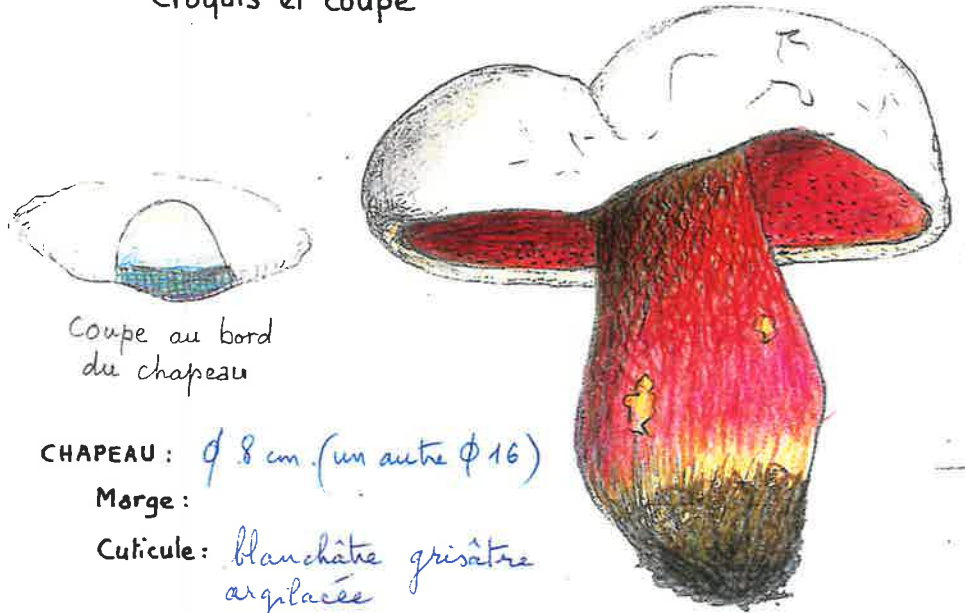 Croquis et coupe
Coupe au bord
du chapeau
CHAPEAU : ϕ 8 cm. (un autre ϕ 16)
Marge :
Cuticule : blanchâtre grisâtre
argilacée